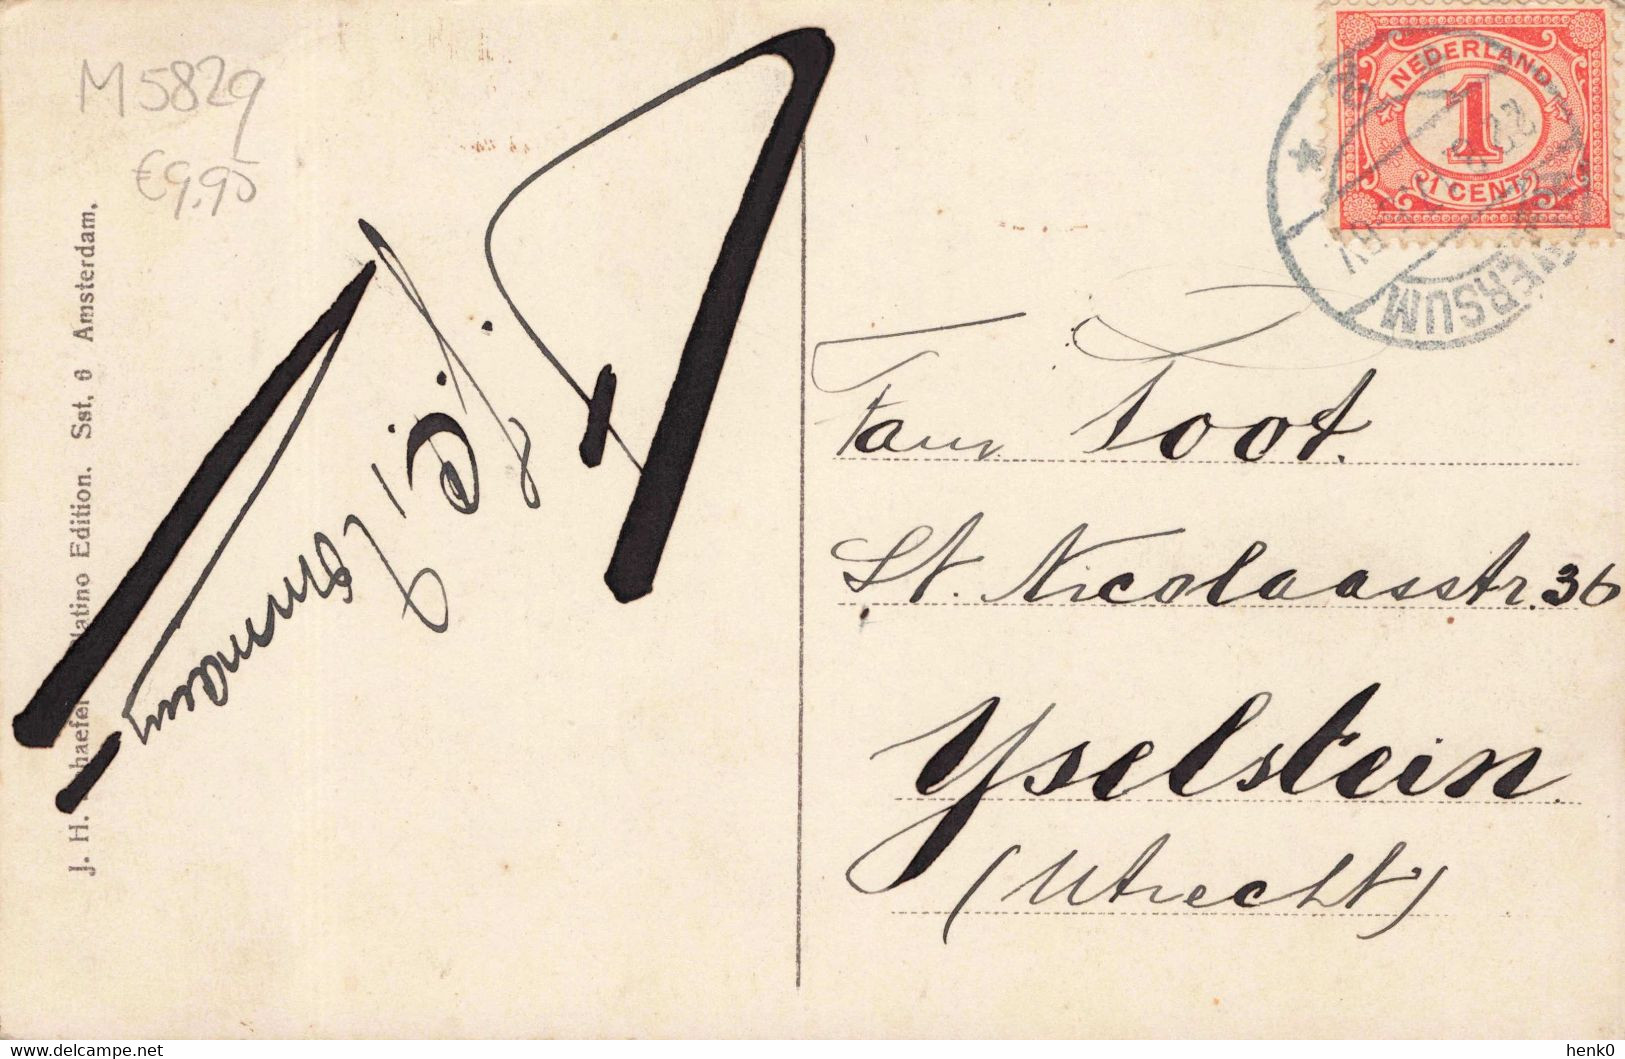 M5829
€9.95
J. H. Schaefer's Platino Edition. Sst, 6 Amsterdam.
NEDERLAND
1
1 CENT
HILVERSUM
Fam Toot.
St. Nicolaasstr. 36
Yselstein
(Utrecht)
www.delcampe.net
henk0